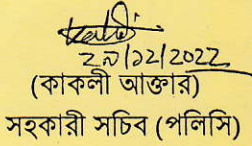 ২৯/১২/২০২২
(কাকলী আক্তার)
সহকারী সচিব (পলিসি)